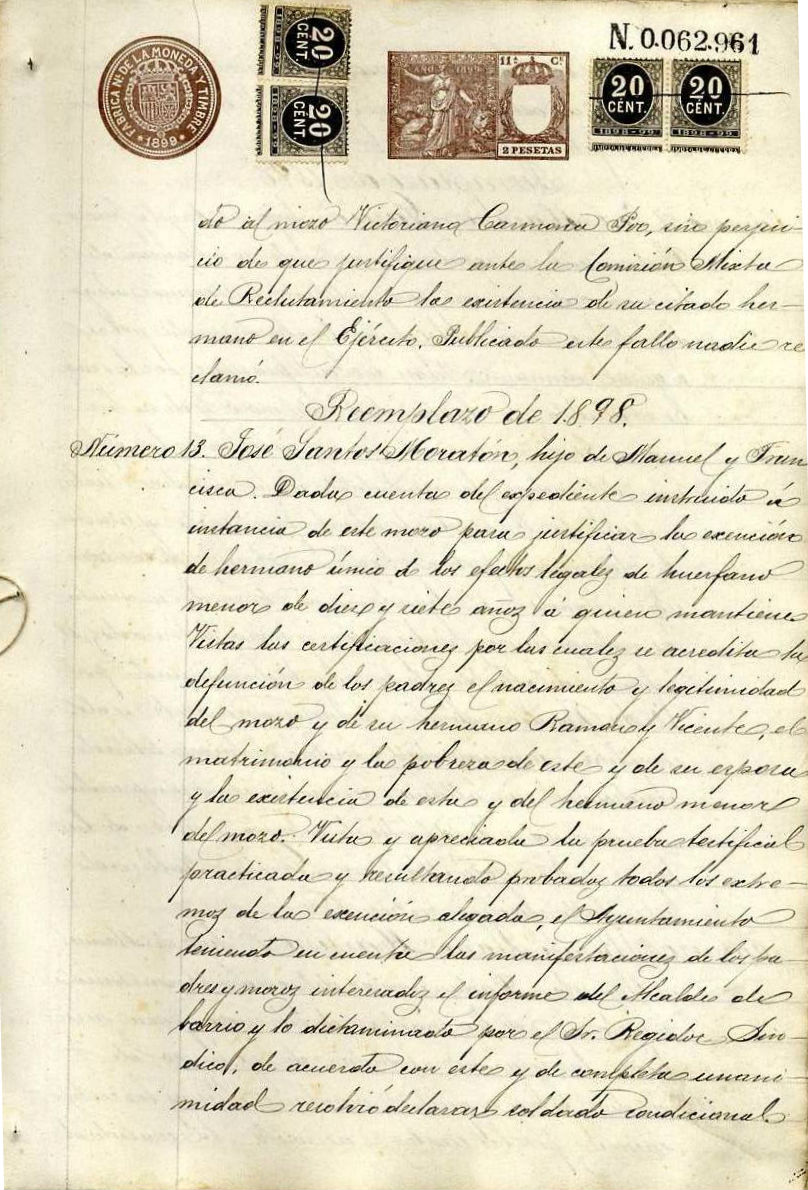 N. 0.062.961
FABRICA Nl. DE LA MONEDA Y TIMBRE
* 1899 *
20 CENT
1898-99
20 CENT
1898-99
11ª Cª
2 PESETAS
20 CÉNT.
1898-99
20 CENT.
1898-99
do al mozo Victoriano Carmona Poo, sin perjui-
cio de que justifique ante la Comisión Mixta
de Reclutamiento la existencia de su citado her-
mano en el Ejército. Publicado este fallo nadie re
clamó.
Reemplazo de 1898.
Número 13. José Santos Moratón, hijo de Manuel y Fran
cisca. Dada cuenta del expediente instruido á
instancia de este mozo para justificar la exención
de hermano único á los efectos legales de huerfano
menor de diez y siete años á quien mantiene
Vistas las certificaciones por las cuales se acredita la
defunción de los padres el nacimiento y legitimidad
del mozo y de su hermano Ramon y Vicente, el
matrimonio y la pobreza de este y de su esposa
y la existencia de esta y del hermano menor
del mozo. Vista y apreciada la prueba testifical
practicada y resultando probados todos los extre-
mos de la exención alegada, el Ayuntamiento
teniendo en cuenta las manifestaciones de los pa-
dres y mozos interesados el informe del Alcalde de
barrio y lo dictaminado por el Sr. Regidor Sin-
dico, de acuerdo con este y de completa unani-
midad resolvió declarar soldado condicional